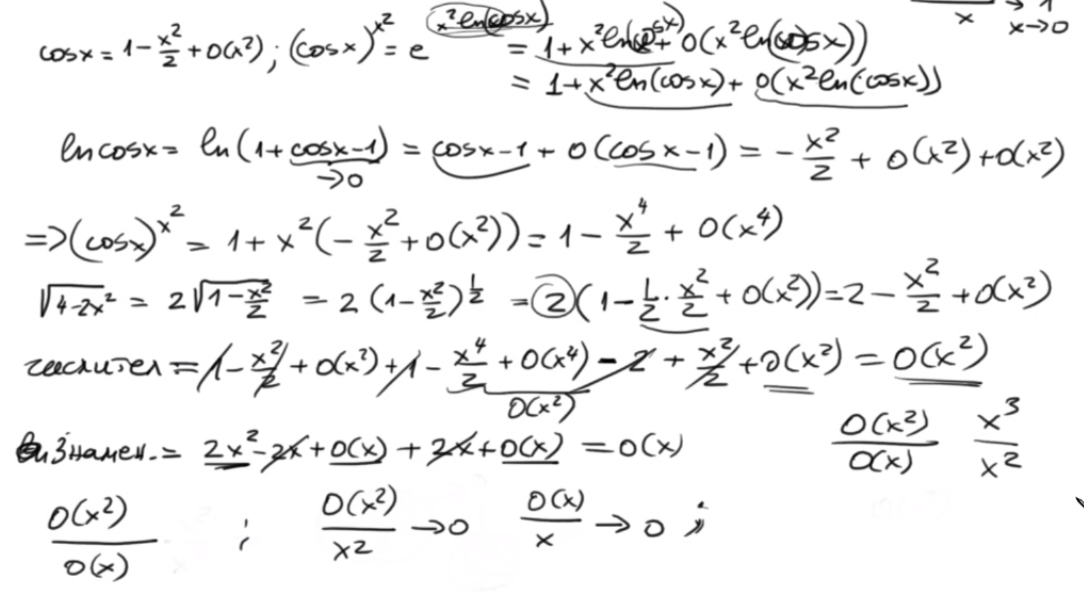 x → 1
x→0
cosx = 1 - x²/2 + o(x²) ; (cosx)^x² = e^x²ln(cosx) = 1 + x²ln(cosx) + o(x²ln(cosx))
= 1 + x²ln(cosx) + o(x²ln(cosx))
ln cosx = ln(1 + cosx - 1) = cosx - 1 + o(cosx - 1) = - x²/2 + o(x²) + o(x²)
→0
=> (cosx)^x² = 1 + x²(- x²/2 + o(x²)) = 1 - x⁴/2 + o(x⁴)
√4-2x² = 2√1 - x²/2 = 2(1 - x²/2)^1/2 = 2(1 - 1/2 · x²/2 + o(x²)) = 2 - x²/2 + o(x²)
числител = 1 - x²/2 + o(x²) + 1 - x⁴/2 + o(x⁴) - 2 + x²/2 + o(x²) = o(x²)
o(x²)
Знамен. = 2x² - 2x + o(x) + 2x + o(x) = o(x)
o(x²)/o(x) x³/x²
o(x²)/o(x) ; o(x²)/x² → 0 o(x)/x → 0 ;